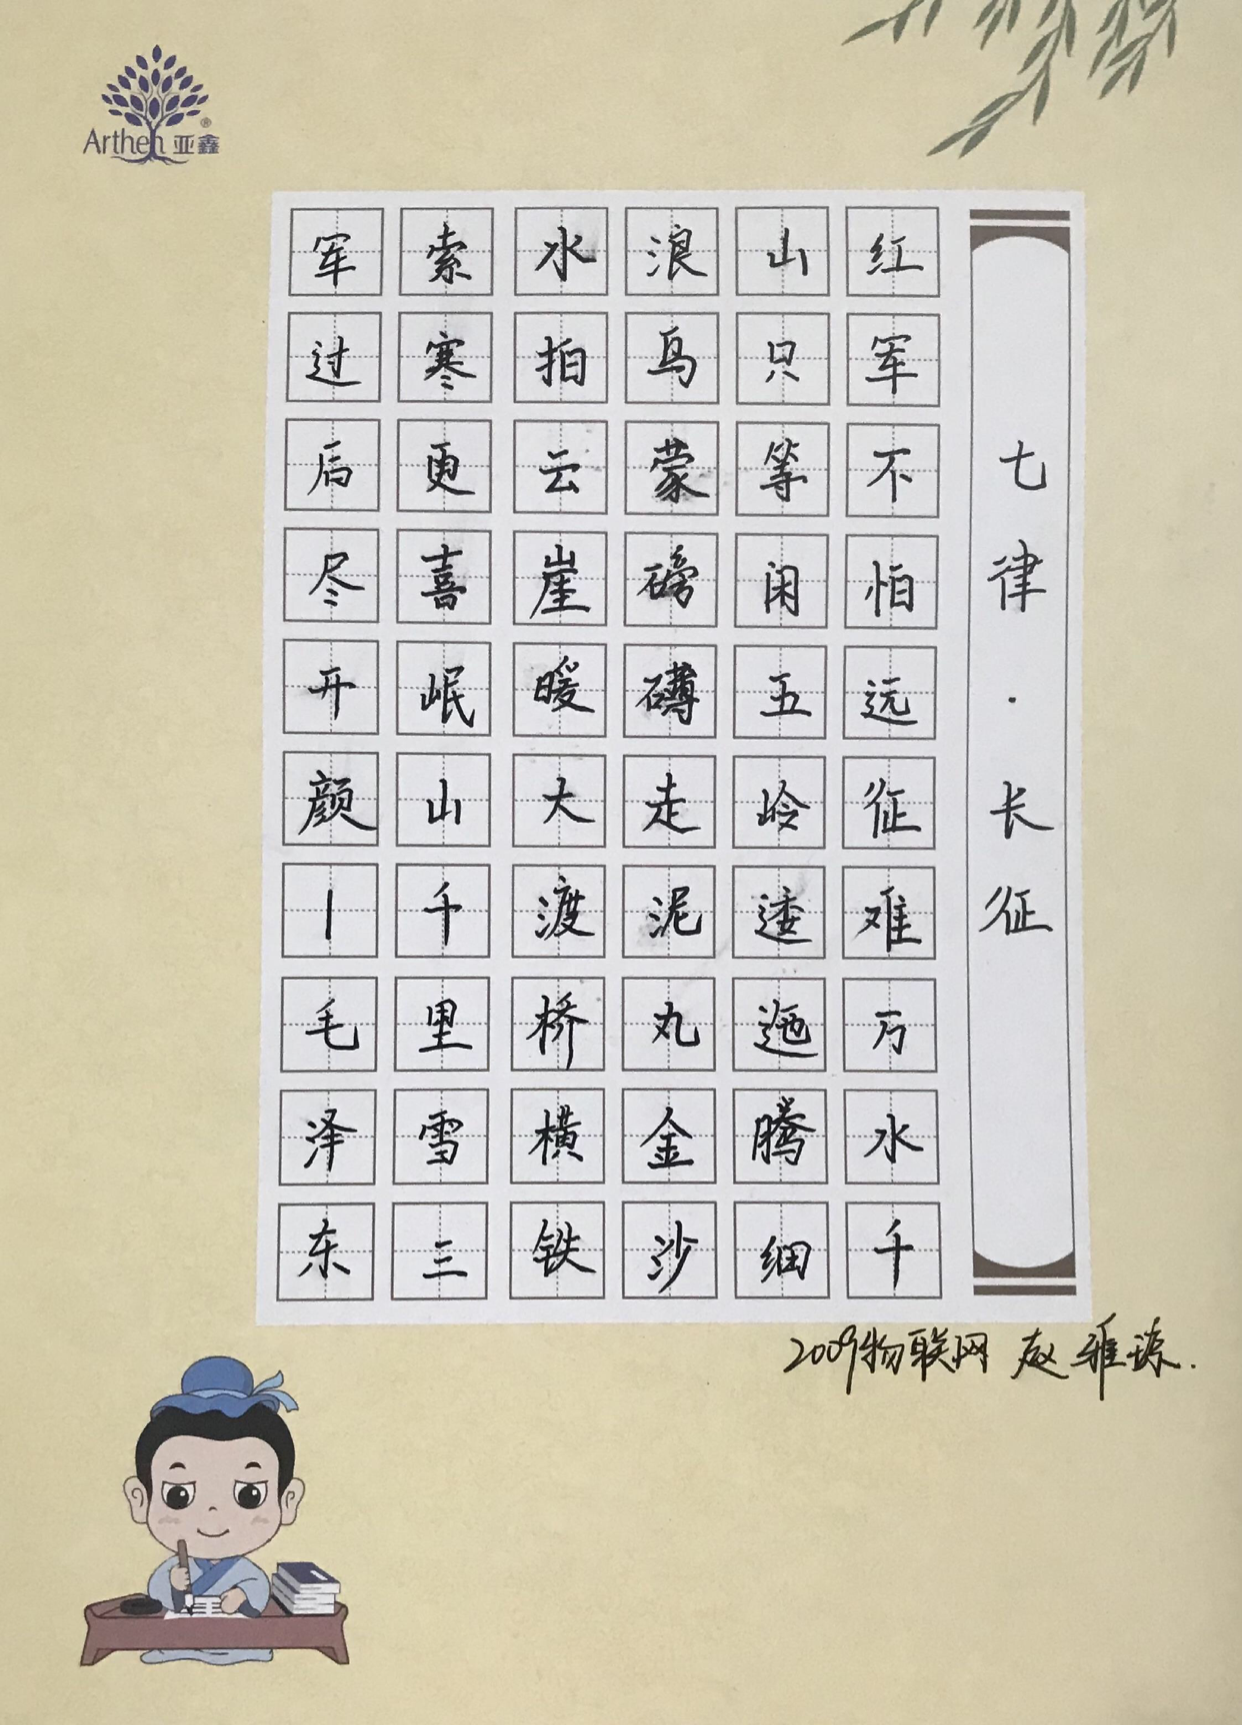 Arthen 亚鑫
七律·长征
红军不怕远征难万水千
山只等闲五岭逶迤腾细
浪乌蒙磅礴走泥丸金沙
水拍云崖暖大渡桥横铁
索寒更喜岷山千里雪三
军过后尽开颜｜毛泽东
2009物联网 赵雅琼.